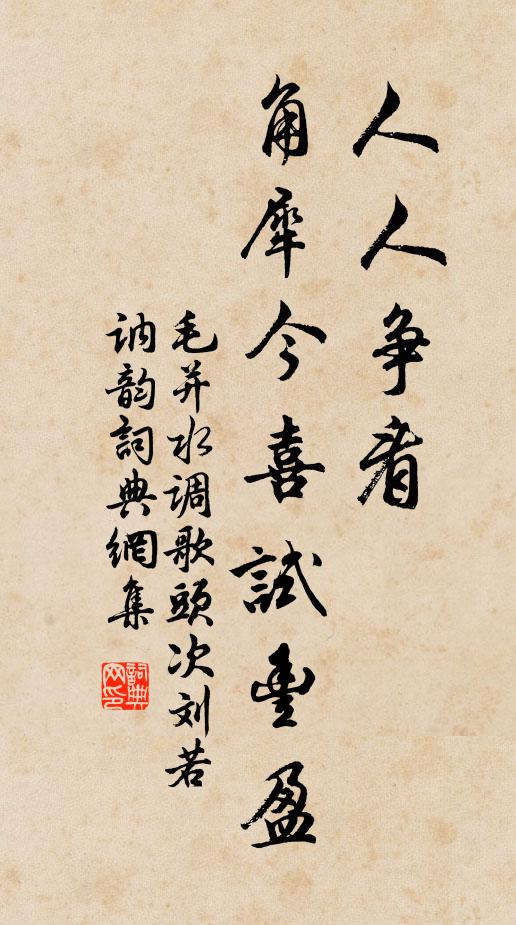 人人争看
角犀今喜試豊盈
毛并水调歌頭次刘若
讷韵詞典網集
詞典网印